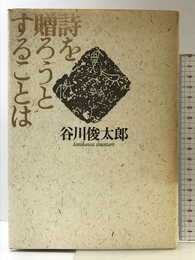 詩を
贈ろうと
することは
谷川俊太郎
tanikawa shuntarō